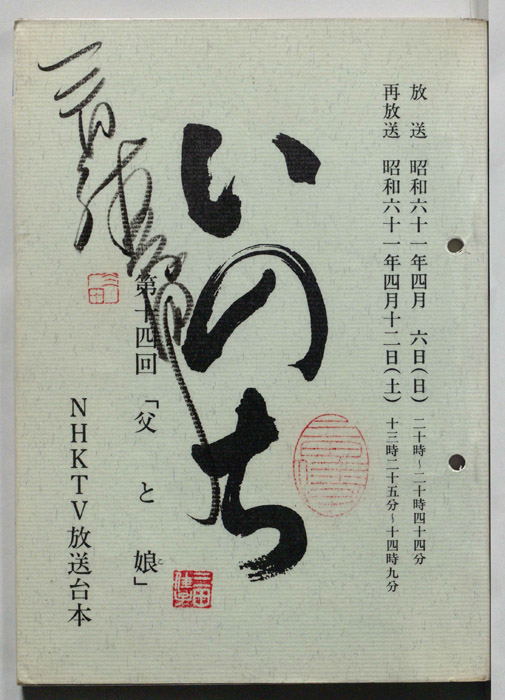 放　送　昭和六十一年四月　六日(日)　二十時～二十時四十四分
再放送　昭和六十一年四月十二日(土)　十三時二十五分～十四時九分
いのち
第十四回「父　と　娘」
こ
NHKTV放送台本
三田
三田佳子